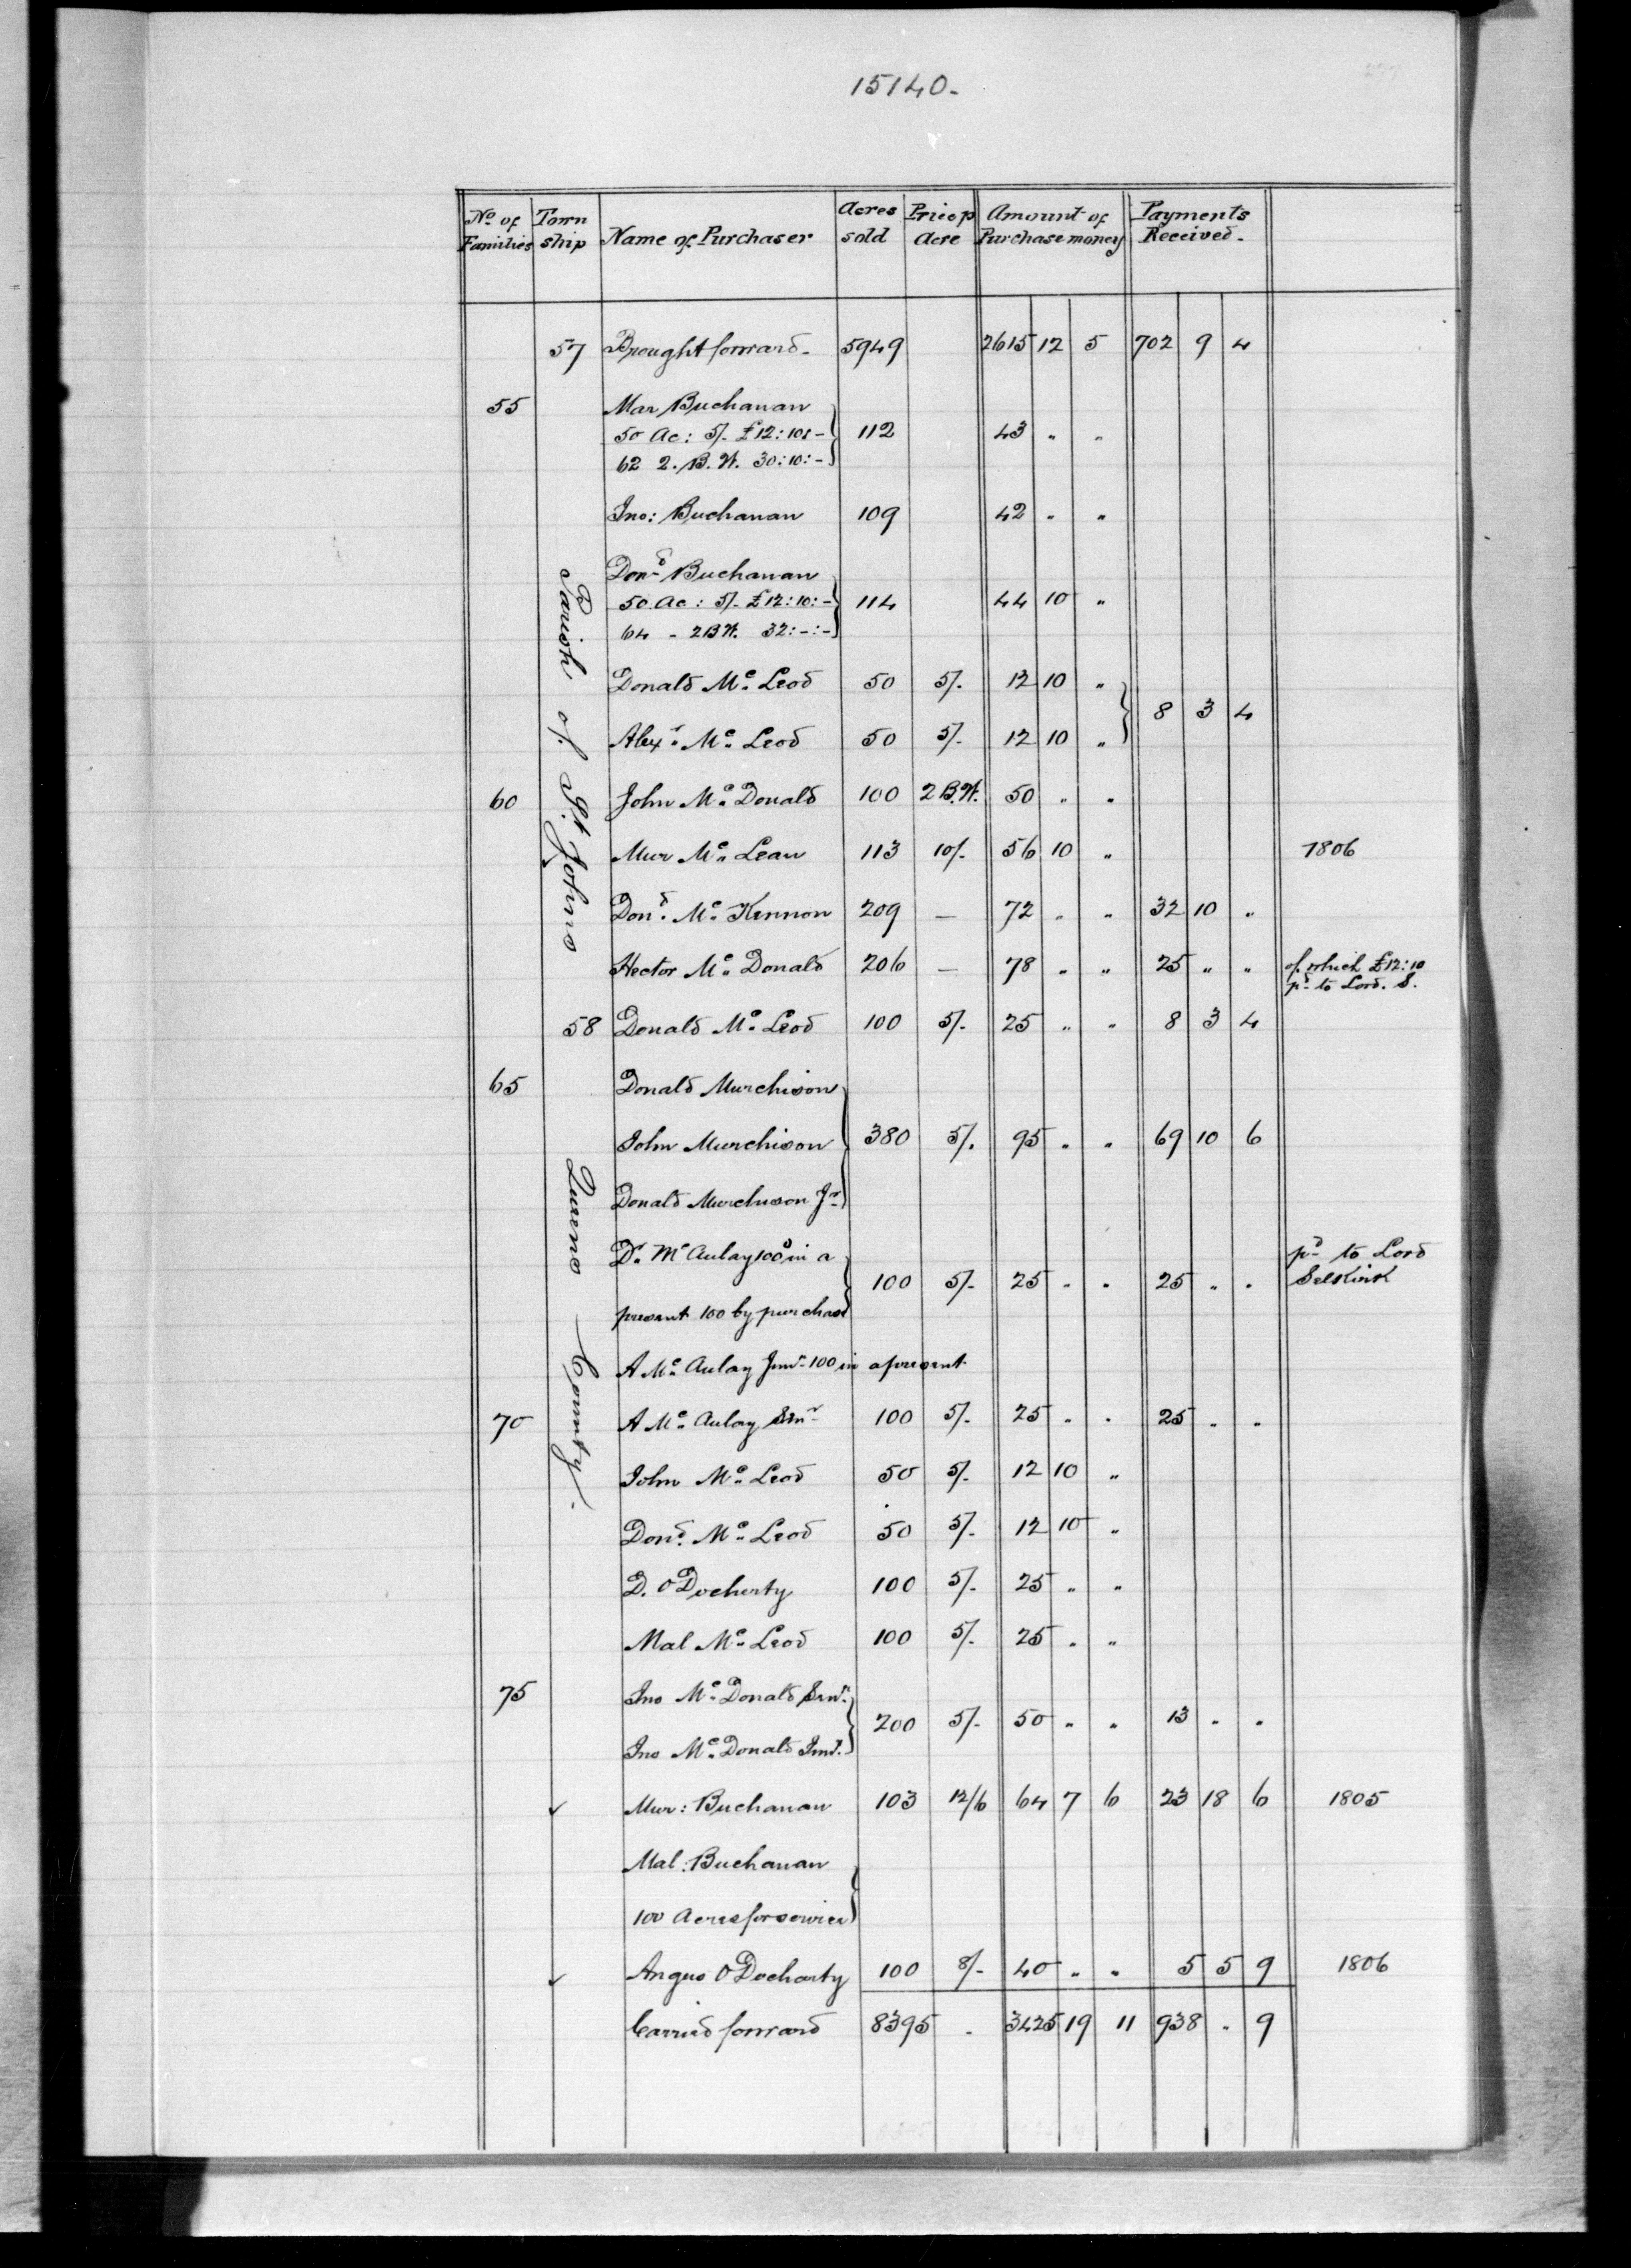 15140.
No. of Families Town ship Name of Purchaser Acres sold Price p Acre Amount of Purchase money Payments Received.
57 Brought forward. 5949 2615 12 5 702 9 4
55 Mar Buchanan
50 Ac: 5/- £12:10:- 112 43 " "
62 2. B.W. 30:10:-
Jno: Buchanan 109 42 " "
Dond Buchanan
50 Ac: 5/- £12:10:- 114 44 10 "
64 - 2BW. 32:-:-
Donald Mc Leod 50 5/- 12 10 "
8 3 4
Alexr Mc Leod 50 5/- 12 10 "
60 John Mc Donald 100 2 B.W. 50 " "
Mur Mc Lean 113 10/- 56 10 " 1806
Dond. Mc Kennon 209 — 72 " " 32 10 "
Hector Mc Donald 206 — 78 " " 25 " " of which £12:10
pd to Lord. S.
Parish of St Johns
58 Donald Mc Leod 100 5/- 25 " " 8 3 4
65 Donald Murchison
John Murchison 380 5/. 95 " " 69 10 6
Donald Murchison Jr
Dr Mc Aulay 100 in a pd to Lord
100 5/- 25 " " 25 " " Selkirk
present 100 by purchase
A Mc Aulay Junr 100 in a present
70 A Mc Aulay Senr 100 5/- 25 " " 25 " "
Queens County.
John Mc Leod 50 5/- 12 10 "
Dond. Mc Leod 50 5/- 12 10 "
D. O Docherty 100 5/- 25 " "
Mal Mc Leod 100 5/- 25 " "
75 Jno Mc Donald Senr.
200 5/- 50 " " 13 " "
Jno Mc Donald Junr.
✓ Mur: Buchanan 103 12/6 64 7 6 23 18 6 1805
Mal: Buchanan
100 Acres for service
✓ Angus O Docharty 100 8/- 40 " " 5 5 9 1806
Carried forward 8395 - 3425 19 11 938 " 9